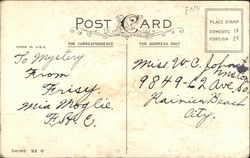 POST CARD
ENY
PLACE STAMP
DOMESTIC 1¢
FOREIGN 2¢
MADE IN U.S.A.
FOR CORRESPONDENCE
FOR ADDRESS ONLY
To Mystery
From
Frisy.
Mia Moglie.
Miss W C. Johnst
9849-62 Ave. So.
Rainier Beach
City.
Series 93 C